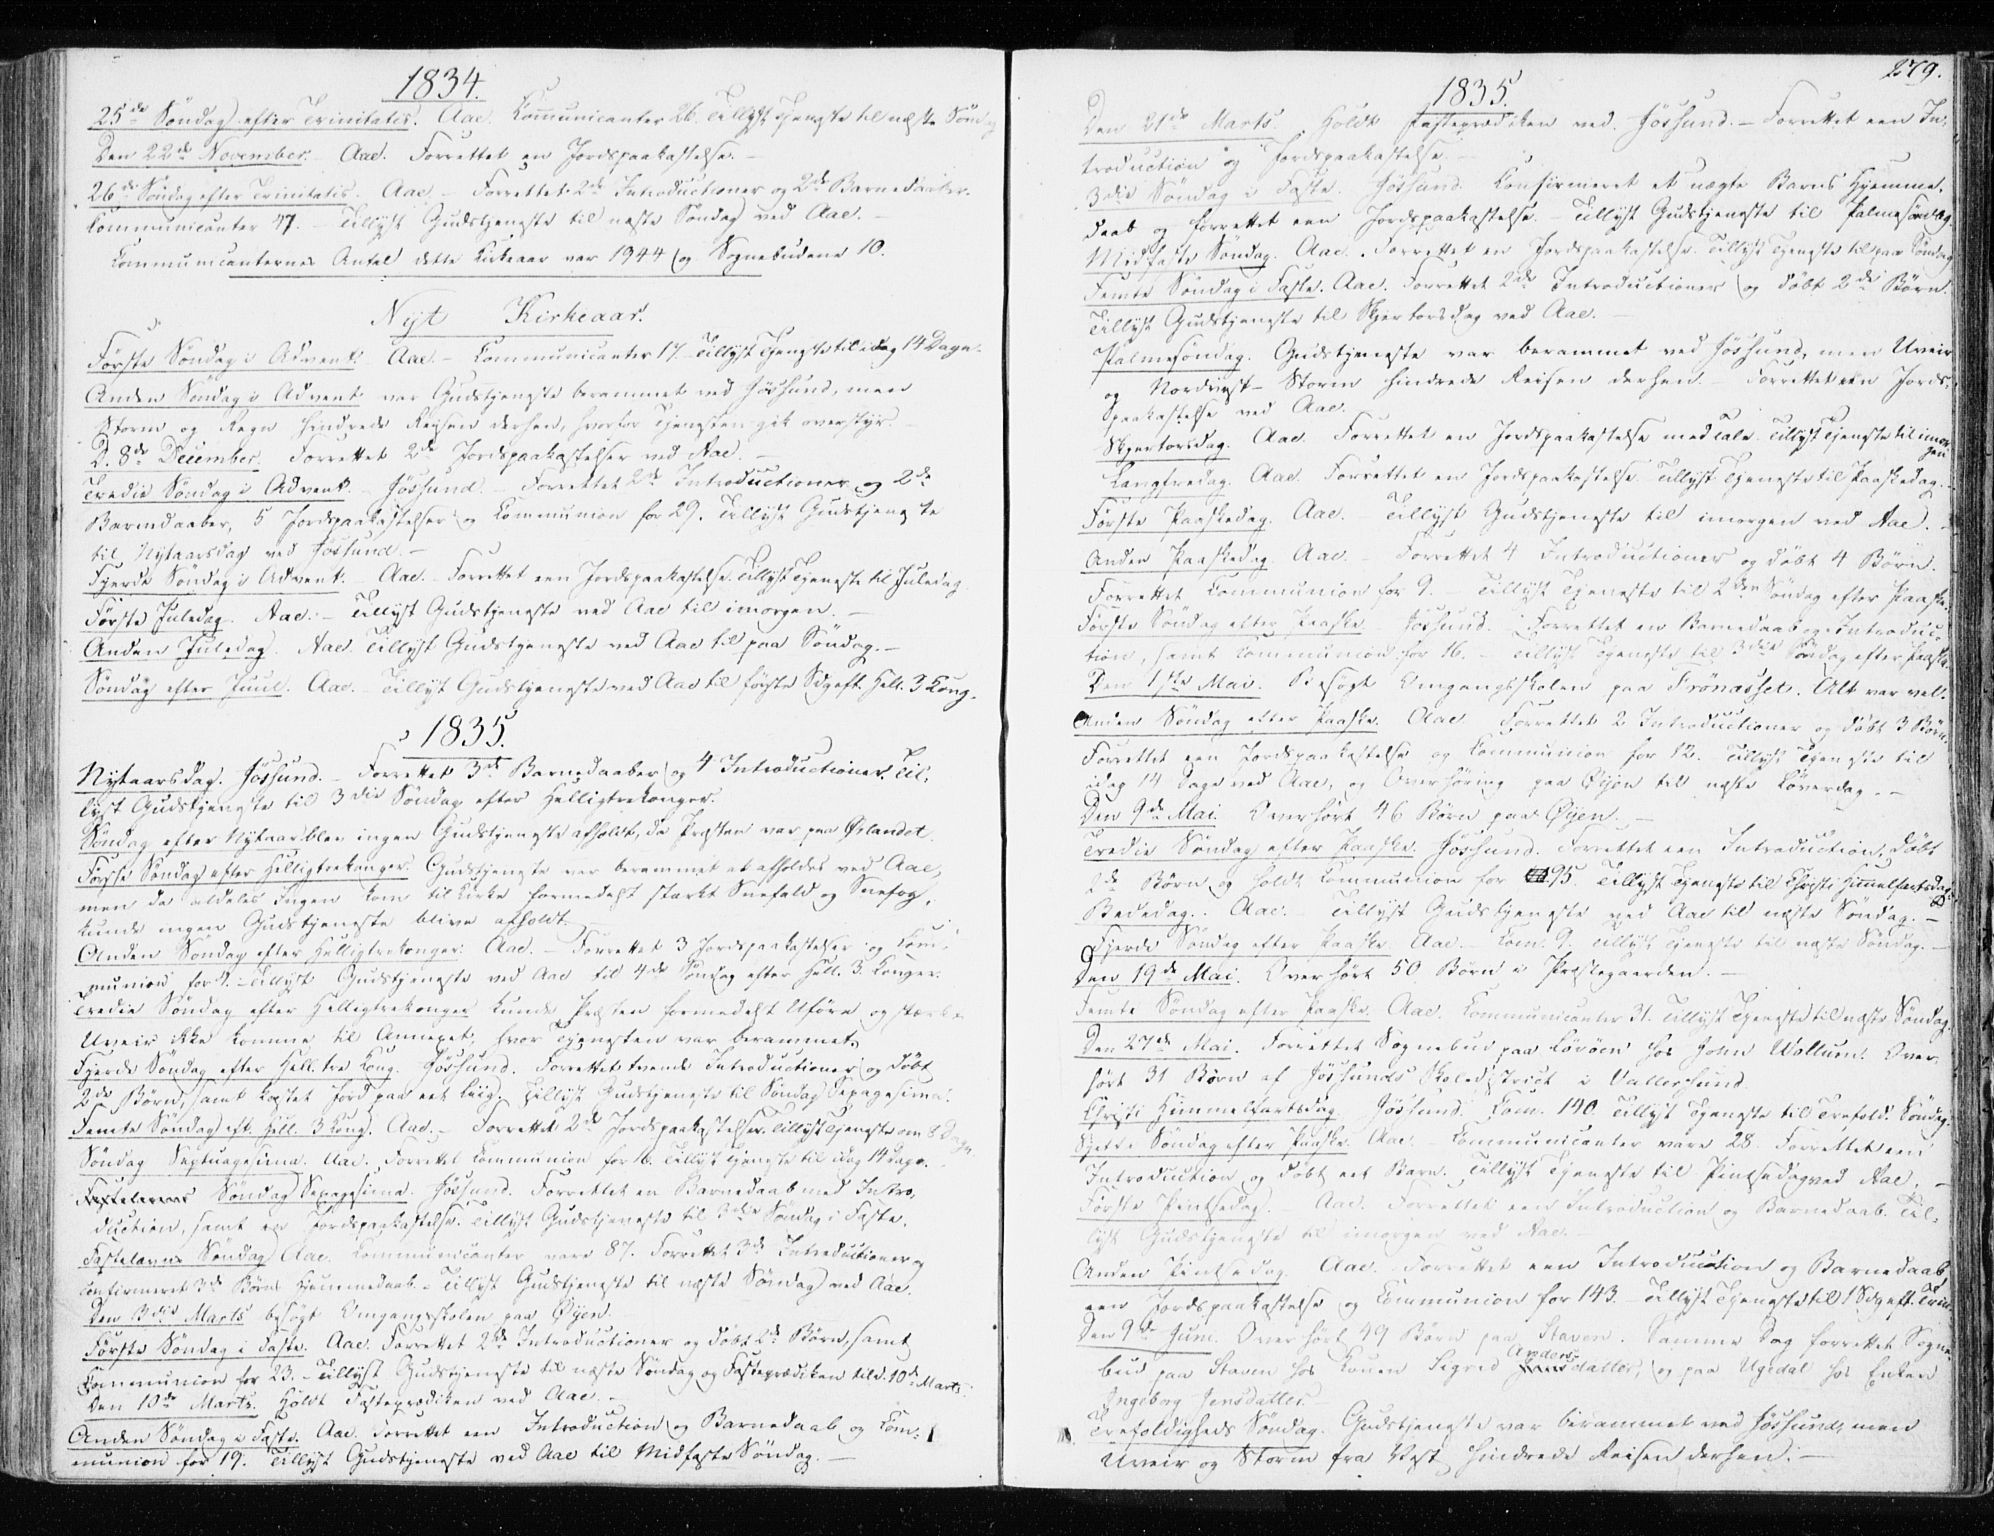 1834.
25de Søndag efter Trinitatis. Aae. Communicanter 26. Tillyst Tjeneste til næste Søndag
Den 22de November. Aae. Forrettet en Jordspaakastelse. –
26de Søndag efter Trinitatis. Aae. – Forrettet 2de Introductioner og 2de Barnedaaber.
Communicanter 47. – Tillyst Gudstjeneste til næste Søndag ved Aae. –
Communicanternes Antal dette Kirkeaar var 1944 og Sognebudene 10.
Nyt Kirkeaar.
Første Søndag i Advent. Aae. – Communicanter 17. Tillyst Tjeneste til idag 14 Dage.
Anden Søndag i Advent var Gudstjeneste berammet ved Jøssund, men
Storm og Regn hindrede Reisen derhen, hvorfor Tjenesten gik overstyr. –
D. 8de December. Forrettet 2de Jordspaakastelser ved Aae. –
Tredie Søndag i Advent. – Jøssund. – Forrettet 2de Introductioner og 2de
Barnedaaber, 5 Jordspaakastelser og Communion for 29. Tillyst Gudstjeneste
til Nytaarsdag ved Jøssund. –
Fjerde Søndag i Advent. – Aae. – Forrettet een Jordspaakastelse. Tillyst Tjeneste til Juledag.
Første Juledag. Aae. – Tillyst Gudstjeneste ved Aae til imorgen. –
Anden Juledag. Aae. Tillyst Gudstjeneste ved Aae til paa Søndag. –
Søndag efter Juul. Aae. – Tillyst Gudstjeneste ved Aae til første Sdg eft. Hell. 3 Kong.
1835.
Nytaarsdag. Jøssund. – Forrettet 3de Barnedaaber og 4 Introductioner. Til-
lyst Gudstjeneste til 3die Søndag efter Helligtrekonger.
Søndag efter Nytaar blev ingen Gudstjeneste afholdt, da Præsten var paa Ørlandet.
Første Søndag efter Helligtrekonger. Gudstjeneste var berammet at afholdes ved Aae,
men da aldeles Ingen kom til Kirke formedelst stærkt Snefald og Snefog,
kunde ingen Gudstjeneste blive afholdt.
Anden Søndag efter Helligtrekonger. Aae. – Forrettet 3 Jordspaakastelser og Com-
munion for 9. – Tillyst Gudstjeneste ved Aae til 4de Søndag efter Hell. 3. Konger.
Tredie Søndag efter Helligtrekonger kunde Præsten formedelst Uføre og stærk
Uveir ikke komme til Annexet, hvor Tjenesten var berammet.
Fjerde Søndag efter Hell. tre Kong. Jøssund. Forrettet trende Introductioner og døbt
2de Børn, samt kastet Jord paa eet Liig. Tillyst Gudstjeneste til Søndag Sexagesima.
Femte Søndag eft. Hell. 3 Kong. Aae. – Forrettet 2de Jordspaakastelser. Tillyst Tjeneste om 8 Dage
Søndag Septuagesima. Aae. Forrettet Communion for 16. Tillyst Tjeneste til idag 14 Dage.
Søndag Sexagesima. Jøssund. Forrettet en Barnedaab med Intro-
duction, samt en Jordspaakastelse. Tillyst Gudstjeneste til 3die Søndag i Faste.
Fastelavns Søndag Aae. Communicanter vare 87. Forrettet 3de Introductioner og
confirmeret 3de Børns Hjemmedaab. – Tillyst Gudstjeneste til næste Søndag ved Aae.
Den 3die Marts besøgt Omgangsskolen paa Øyen.
Første Søndag i Faste. Aae. Forrettet 2de Introductioner og døbt 2de Børn, samt
Communion for 23. – Tillyst Gudstjeneste til næste Søndag og Fasteprædiken til d. 10de Marts.
Den 10de Marts. Holdt Fasteprædiken ved Aae. –
Anden Søndag i Faste. Aae. Forrettet een Introduction og Barnedaab og Com-
munion for 19. Tillyst Gudstjeneste ved Aae til Midfaste Søndag. –
279.
1835.
Den 21de Marts. Holdt Fasteprædiken ved Jøssund. – Forrettet een In-
troduction og Jordspaakastelse. –
3die Søndag i Faste. Jøssund. Confirmeret et uægte Barns Hjemme-
daab og forrettet een Jordspaakastelse. – Tillyst Gudstjeneste til Palmesøndag.
Midfaste Søndag. Aae. Forrettet en Jordspaakastelse. Tillyst Tjeneste til paa Søndag
Femte Søndag i Faste. Aae. Forrettet 2de Introductioner og døbt 2de Børn.
Tillyst Gudstjeneste til Skjertorsdag ved Aae. –
Palmesøndag. Gudstjeneste var berammet ved Jøssund, men Uveir
og Nordvest-Storm hindrede Reisen derhen. – Forrettet een Jords-
paakastelse ved Aae.
Skjertorsdag. Aae. Forrettet en Jordspaakastelse med Tale. Tillyst Tjeneste til imor-
gen
Langfredag. Aae. Forrettet en Jordspaakastelse. Tillyst Tjeneste til Paaskedag. –
Første Paaskedag. Aae. – Tillyst Gudstjeneste til imorgen ved Aae. –
Anden Paaskedag. Aae. – Forrettet 4 Introductioner og døbt 4 Børn.
Forrettet Communion for 9. – Tillyst Tjeneste til 2den Søndag efter Paaske.
Første Søndag efter Paaske. Jøssund. – Forrettet en Barnedaab og Introduc-
tion, samt Communion for 16. – Tillyst Tjeneste til 3die Søndag efter Paaske.
Den 1ste Mai. Besøgt Omgangsskolen paa Trønæsset. Alt var vel.
Anden Søndag efter Paaske. Aae. Forrettet 2 Introductioner og døbt 3 Børn.
Forrettet een Jordspaakastelse og Communion for 12. Tillyst Tjeneste til
idag 14 Dage ved Aae, og Overhøring paa Øyen til næste Løverdag. –
Den 9de Mai. Overhørt 46 Børn paa Øyen. –
Tredie Søndag efter Paaske. Jøssund. Forrettet een Introduction, døbt
2de Børn og holdt Communion for 95. Tillyst Tjeneste til Christi Himmelfartsdag
Bededag. Aae. – Tillyst Gudstjeneste ved Aae til næste Søndag. –
Fjerde Søndag efter Paaske. Aae. – Com. 9. Tillyst Tjeneste til næste Søndag. –
Den 19de Mai. Overhørt 50 Børn i Præstegaarden. –
Femte Søndag efter Paaske. Aae. Communicanter 31. Tillyst Tjeneste til næste Søndag.
Den 27de Mai. Forrettet Sognebud paa Lørøen hos John Wollum. Over-
hørt 31 Børn af Jøssunds Skoledistrict i Vallersund.
Christi Himmelfartsdag. Jøssund. Com. 140. Tillyst Tjeneste til Trefold. Søndag.
Sjette Søndag efter Paaske. Aae. – Communicanter vare 28. Forrettet een
Introduction og døbt eet Barn. Tillyst Tjeneste til Pintsedag ved Aae. –
Første Pintsedag. Aae. Forrettet een Introduction og Barnedaab. Til-
lyst Gudstjeneste til imorgen ved Aae. –
Anden Pintsedag. Aae. Forrettet een Introduction og Barnedaab
een Jordspaakastelse og Communion for 143. – Tillyst Tjeneste til 1 Sdg eft. Trin.
Den 9de Juni. Overhørt 49 Børn paa Staven. Samme Dag forrettet Sogne-
bud paa Staven hos Konen Sigrid Andersdatter, og paa Ugedal hos Enken
Ingeborg Jensdatter.
Trefoldigheds Søndag. Gudstjeneste var berammet ved Jøssund, men
Uveir og Storm fra Vest hindrede Reisen derhen. –